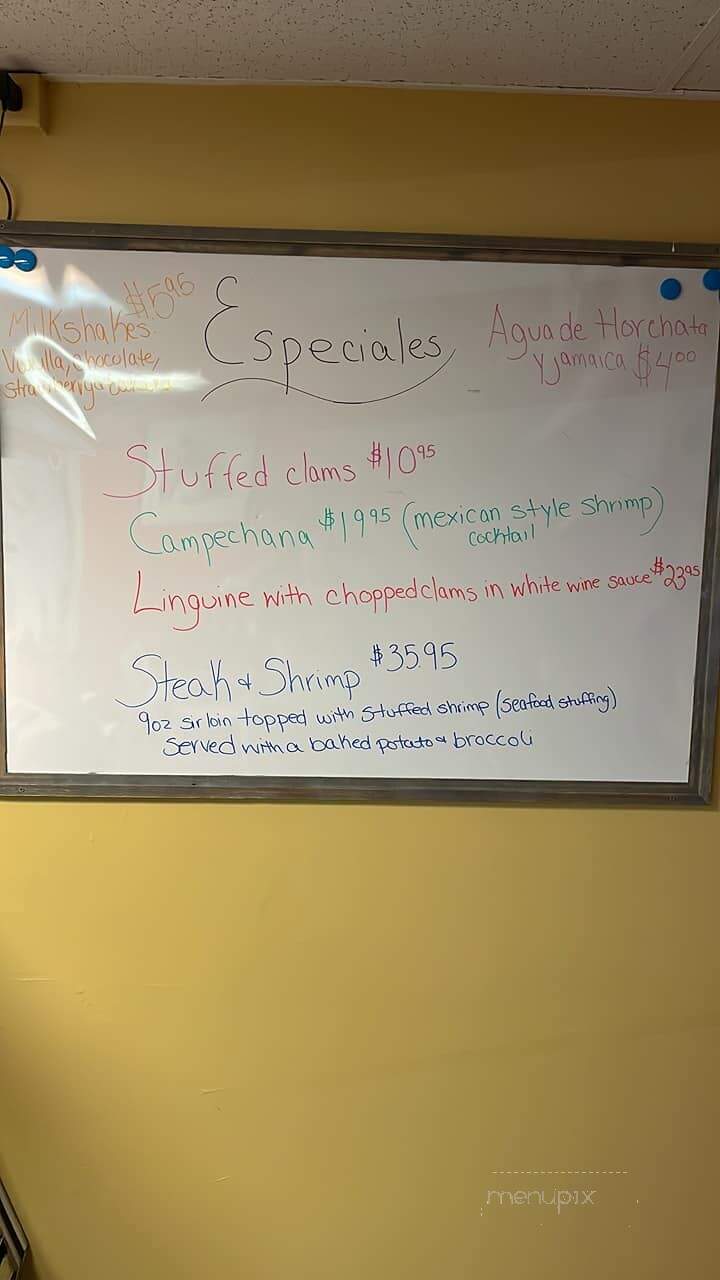 $5.95
Milkshakes:
Vanilla, chocolate,
Strawberry
Especiales
Agua de Horchata
y Jamaica $4.00
Stuffed clams $10.95
Campechana $19.95 (mexican style shrimp)
cocktail
Linguine with chopped clams in white wine sauce $23.95
Steak & Shrimp $35.95
9oz sirloin topped with stuffed shrimp (seafood stuffing)
served with a baked potato & broccoli
menupix